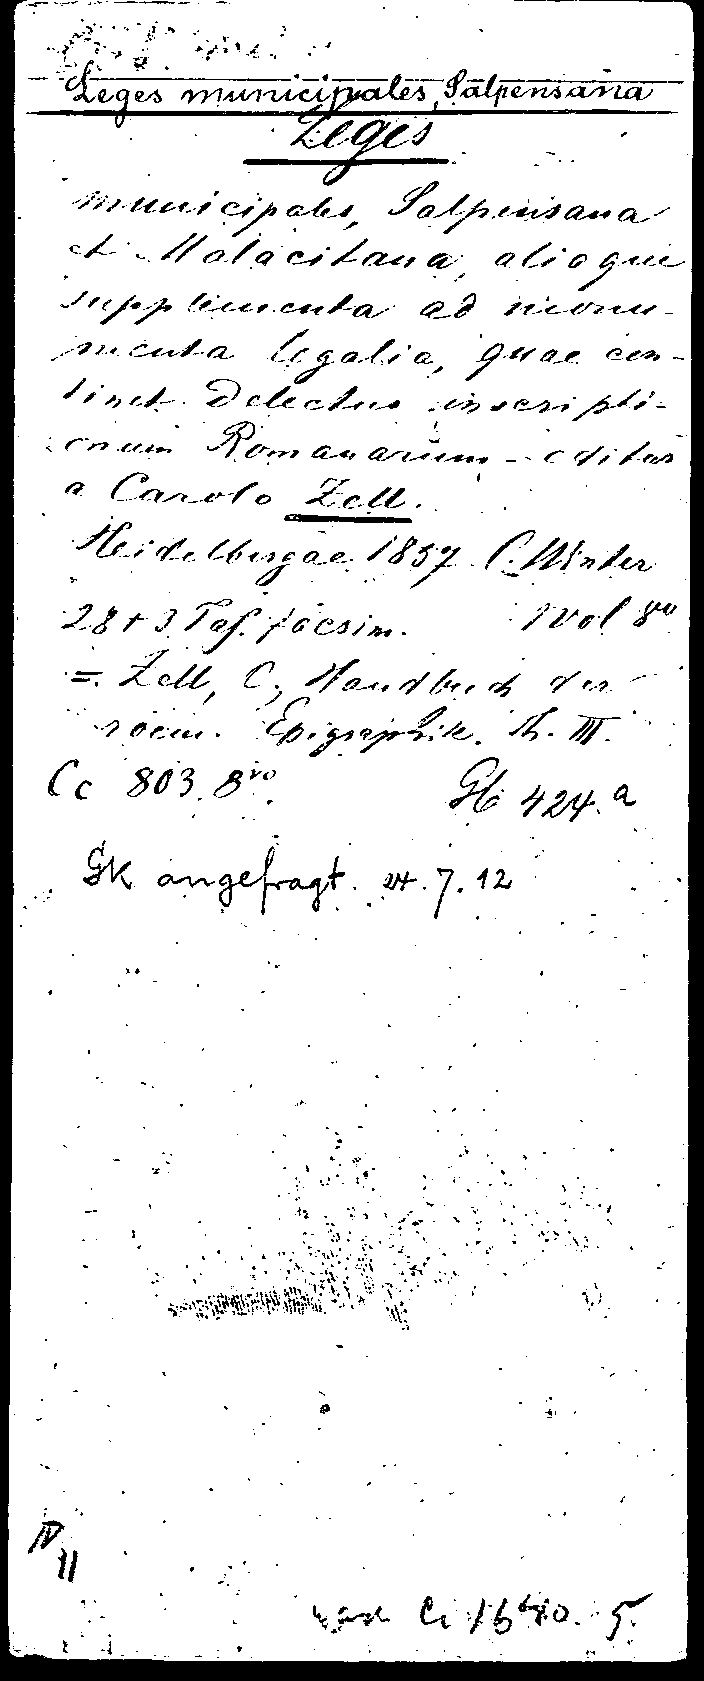 Leges municipales, Salpensana
Leges
municipales, Salpensana
et Malacitana, aliaque
supplementa ad monu-
menta legalia, quae con-
tinet Delectus inscripti-
onum Romanarum editus
a Carolo Zell.
Heidelbergae 1857 C. Winter
28 + 3 Taf. facsim. 1 Vol 8vo
= Zell, C., Handbuch der
roem. Epigraphik. Th. III.
Cc 803. 8vo Gb 424.a
GK angefragt. 24.7.12
IV
11